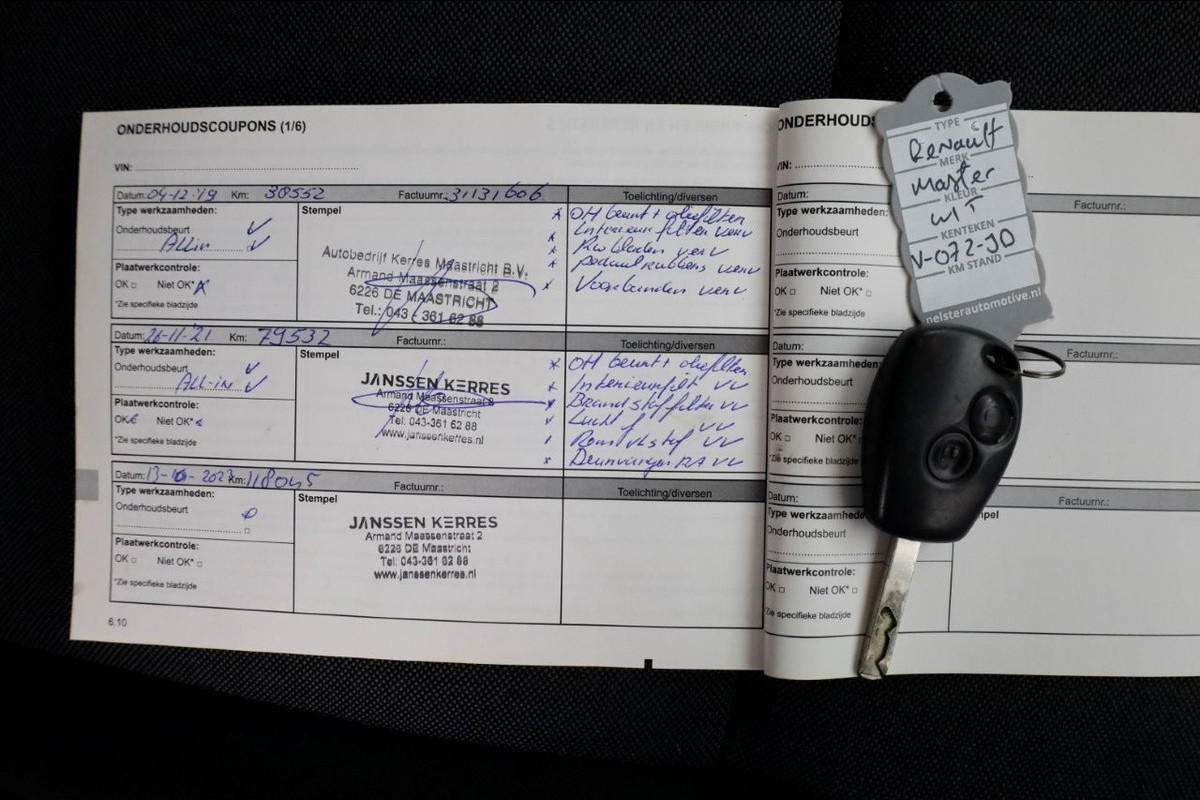 ONDERHOUDSCOUPONS (1/6)
VIN:
Datum: 04-12-'19 Km: 38552 Factuurnr.: 31131606 Toelichting/diversen
Type werkzaamheden:
Onderhoudsbeurt
All in
Plaatwerkcontrole:
OK Niet OK*
*Zie specifieke bladzijde
Stempel
Autobedrijf Kerres Maastricht B.V.
Armand Maassenstraat 2
6226 DE MAASTRICHT
Tel.: 043 - 361 62 88
OH beurt + oliefilter
Interieur filter verv
Rw bladen verv
pedaalrubbers verv
Voorbanden verv
Datum: 26-11-'21 Km: 79532 Factuurnr.: Toelichting/diversen
Type werkzaamheden:
Onderhoudsbeurt
All-in
Plaatwerkcontrole:
OK Niet OK*
*Zie specifieke bladzijde
Stempel
JANSSEN KERRES
Armand Maassenstraat 2
6226 DE Maastricht
Tel. 043-361 62 88
www.janssenkerres.nl
OH beurt + oliefilter
Interieurfilt VV
Brandstoffilter VV
Lucht VV
VV
RA VV
Datum: 2023 Km: 118045 Factuurnr.: Toelichting/diversen
Type werkzaamheden:
Onderhoudsbeurt
Plaatwerkcontrole:
OK Niet OK*
*Zie specifieke bladzijde
Stempel
JANSSEN KERRES
Armand Maassenstraat 2
6226 DE Maastricht
Tel: 043-361 62 88
www.janssenkerres.nl
6.10
ONDERHOUDS
VIN:
Datum: Factuurnr.:
Type werkzaamhede
Onderhoudsbeurt
Plaatwerkcontrole:
OK Niet OK*
*Zie specifieke bladzijde
Datum: Factuurnr.:
Type werkzaamhede
Onderhoudsbeurt
Plaatwerkcontrole:
OK Niet OK*
*Zie specifieke bladzijde
Datum: Factuurnr.:
Type werkzaamhede
Onderhoudsbeurt
Plaatwerkcontrole:
OK Niet OK*
*Zie specifieke bladzijde
mpel
TYPE
Renault
MERK
Master
KLEUR
WIT
KENTEKEN
V-072-JD
KM STAND
pelsterautomotive.nl